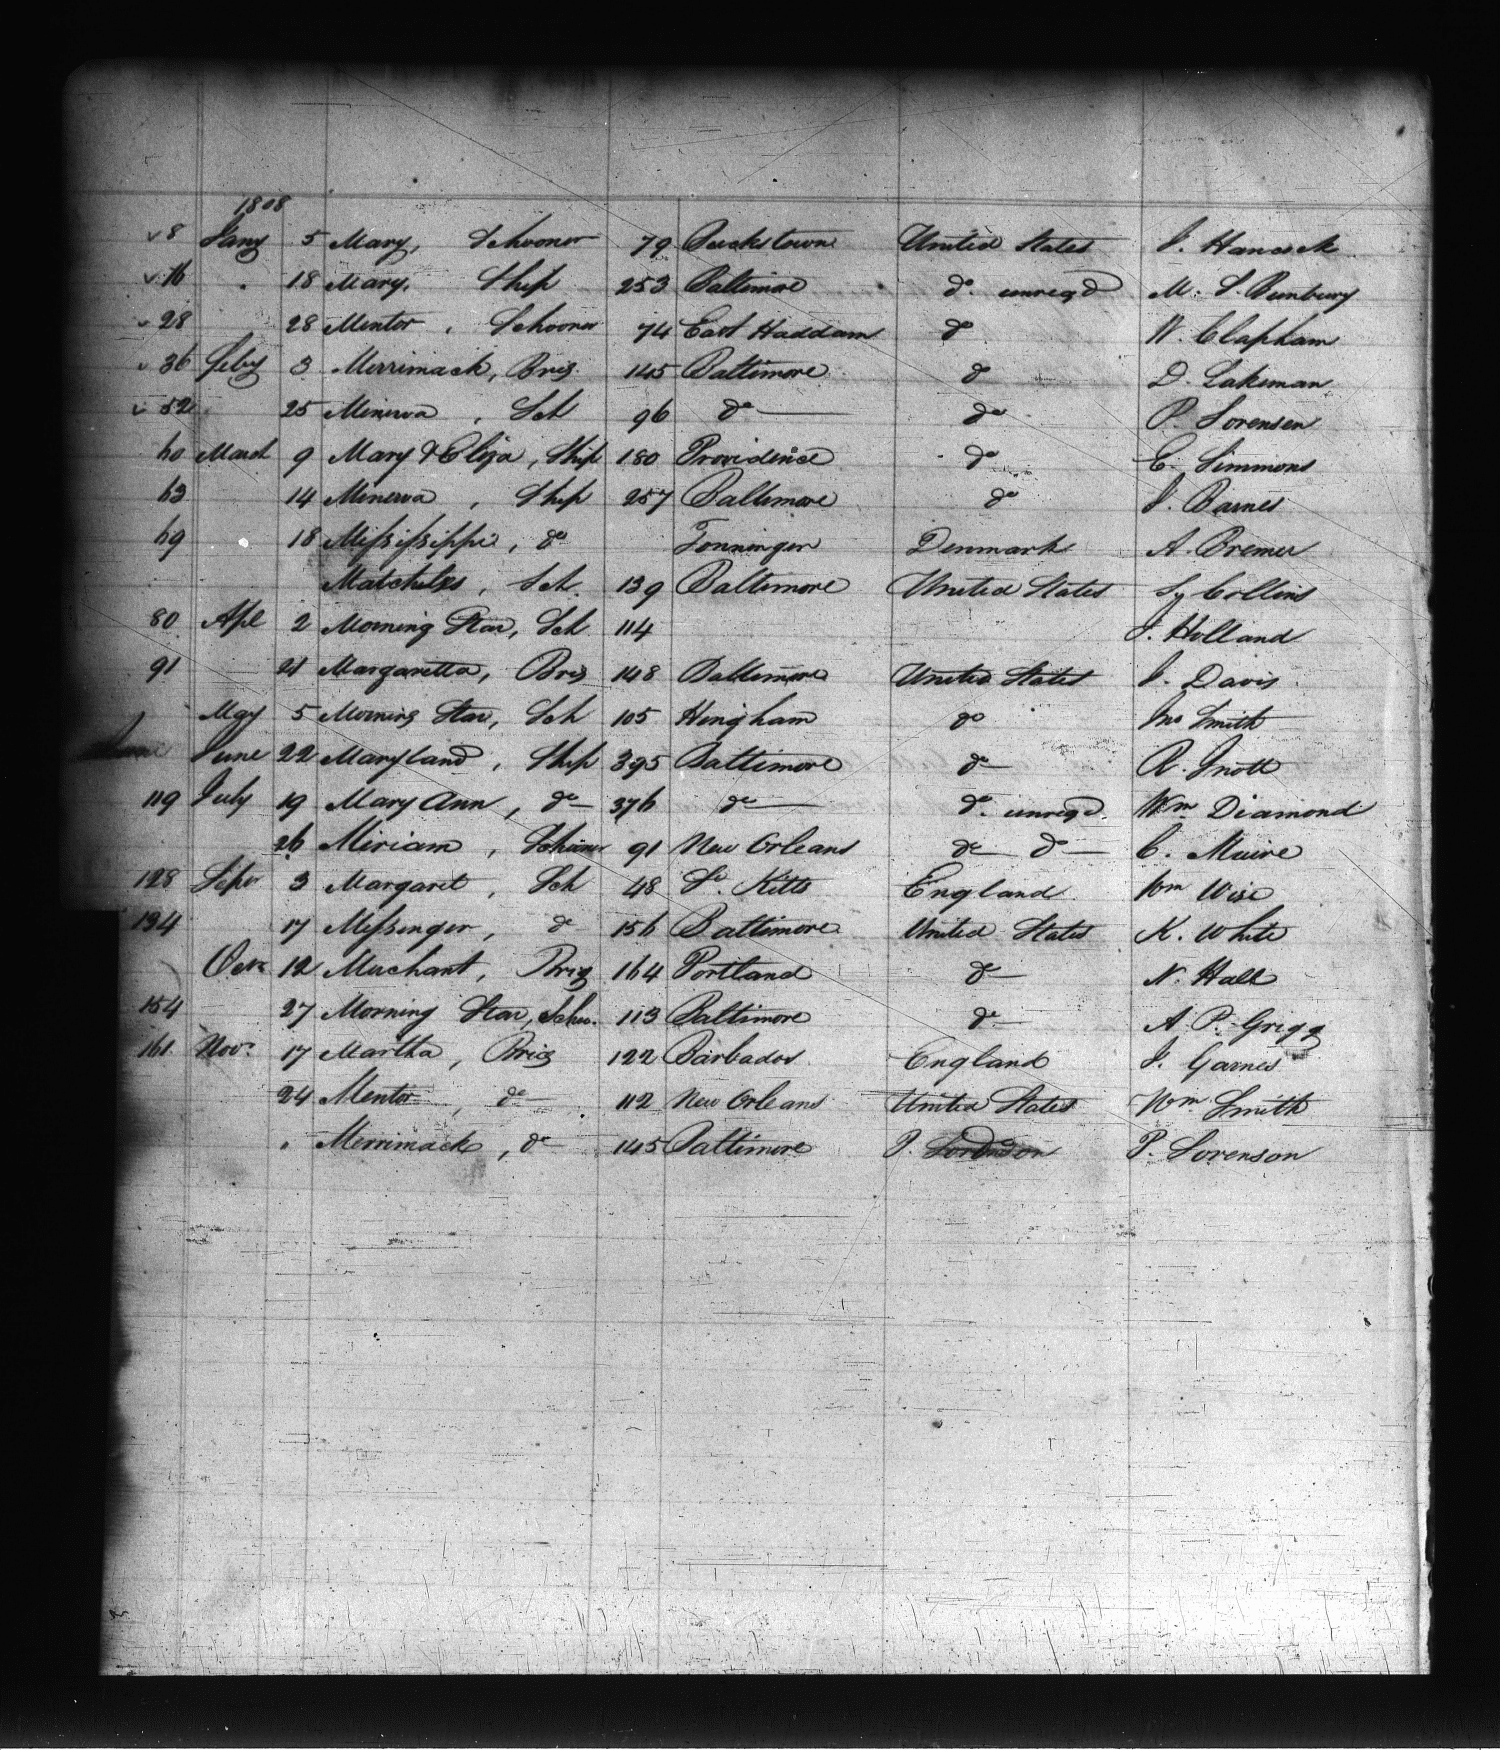 1808
8 Jany 5 Mary, Schooner 79 Buckstown United States J. Hancock
16 " 18 Mary, Ship 253 Baltimore do. unregd M. S. Bunbury
28 28 Mentor, Schooner 74 East Haddam do W. Clapham
36 Feby 3 Merrimack, Brig 145 Baltimore do D. Lakeman
52 25 Minerva, Sch 96 do do P. Sorensen
60 March 9 Mary & Eliza, Ship 180 Providence do C. Simmons
63 14 Minerva, Ship 257 Baltimore do J. Barnes
69 18 Mississippi, do Tonningen Denmark A. Bremer
Matchless, Sch. 139 Baltimore United States Collins
80 Apl 2 Morning Star, Sch 114 J. Holland
91 21 Margaretta, Brig 148 Baltimore United States J. Davis
May 5 Morning Star, Sch 105 Hingham do Jno Smith
June 22 Maryland, Ship 395 Baltimore do R. Knott
119 July 19 Mary Ann, do 376 do do. unregd. Wm Diamond
26 Miriam, Schooner 91 New Orleans do do C. Muire
128 Sepr 3 Margaret, Sch 48 St. Kitts England Wm Wise
134 17 Messenger, do 156 Baltimore United States K. White
Octr 12 Merchant, Brig 164 Portland do N. Hall
154 27 Morning Star, Schr. 113 Baltimore do A. P. Grigg
161 Novr 17 Martha, Brig 122 Barbados England J. Garnes
24 Mentor, do 112 New Orleans United States Wm Smith
" Merrimack, do 145 Baltimore P. Sorenson P. Sorenson